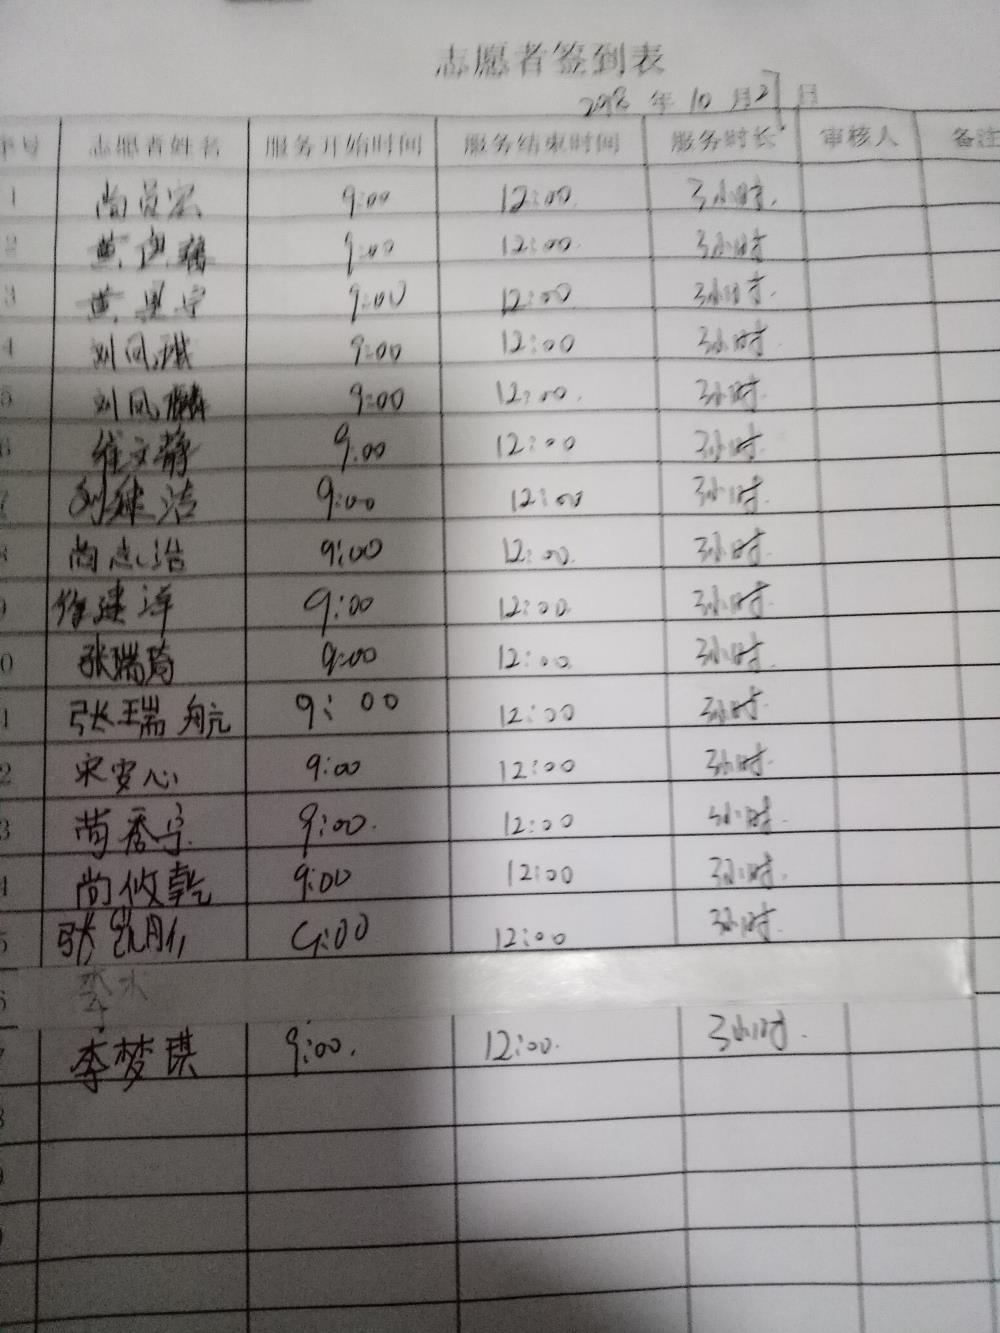 志愿者签到表
2018 年 10 月 27 日
序号 志愿者姓名 服务开始时间 服务结束时间 服务时长 审核人 备注
1 尚 宏 9:00 12:00. 3小时.
2 黄 9:00 12:00. 3小时
3 黄 宁 9:00 12:00. 3小时.
4 刘凤琪 9:00 12:00 3小时.
5 刘凤麟 9:00 12:00. 3小时.
6 文静 9.00 12:00 3小时.
7 刘继洁 9:00 12:00 3小时.
8 尚志浩 9:00 12:00. 3小时.
9 徐建洋 9:00 12:00. 3小时.
0 张瑞琦 9:00 12:00 3小时.
1 张瑞航 9:00 12:00 3小时.
2 宋安心 9:00 12:00 3小时.
3 尚香宁 9:00. 12:00 3小时.
4 尚攸乾 9:00 12:00 3小时.
5 张凯月 9:00 12:00 3小时.
6 李
7 李梦琪 9:00. 12:00. 3小时.
8
9
0